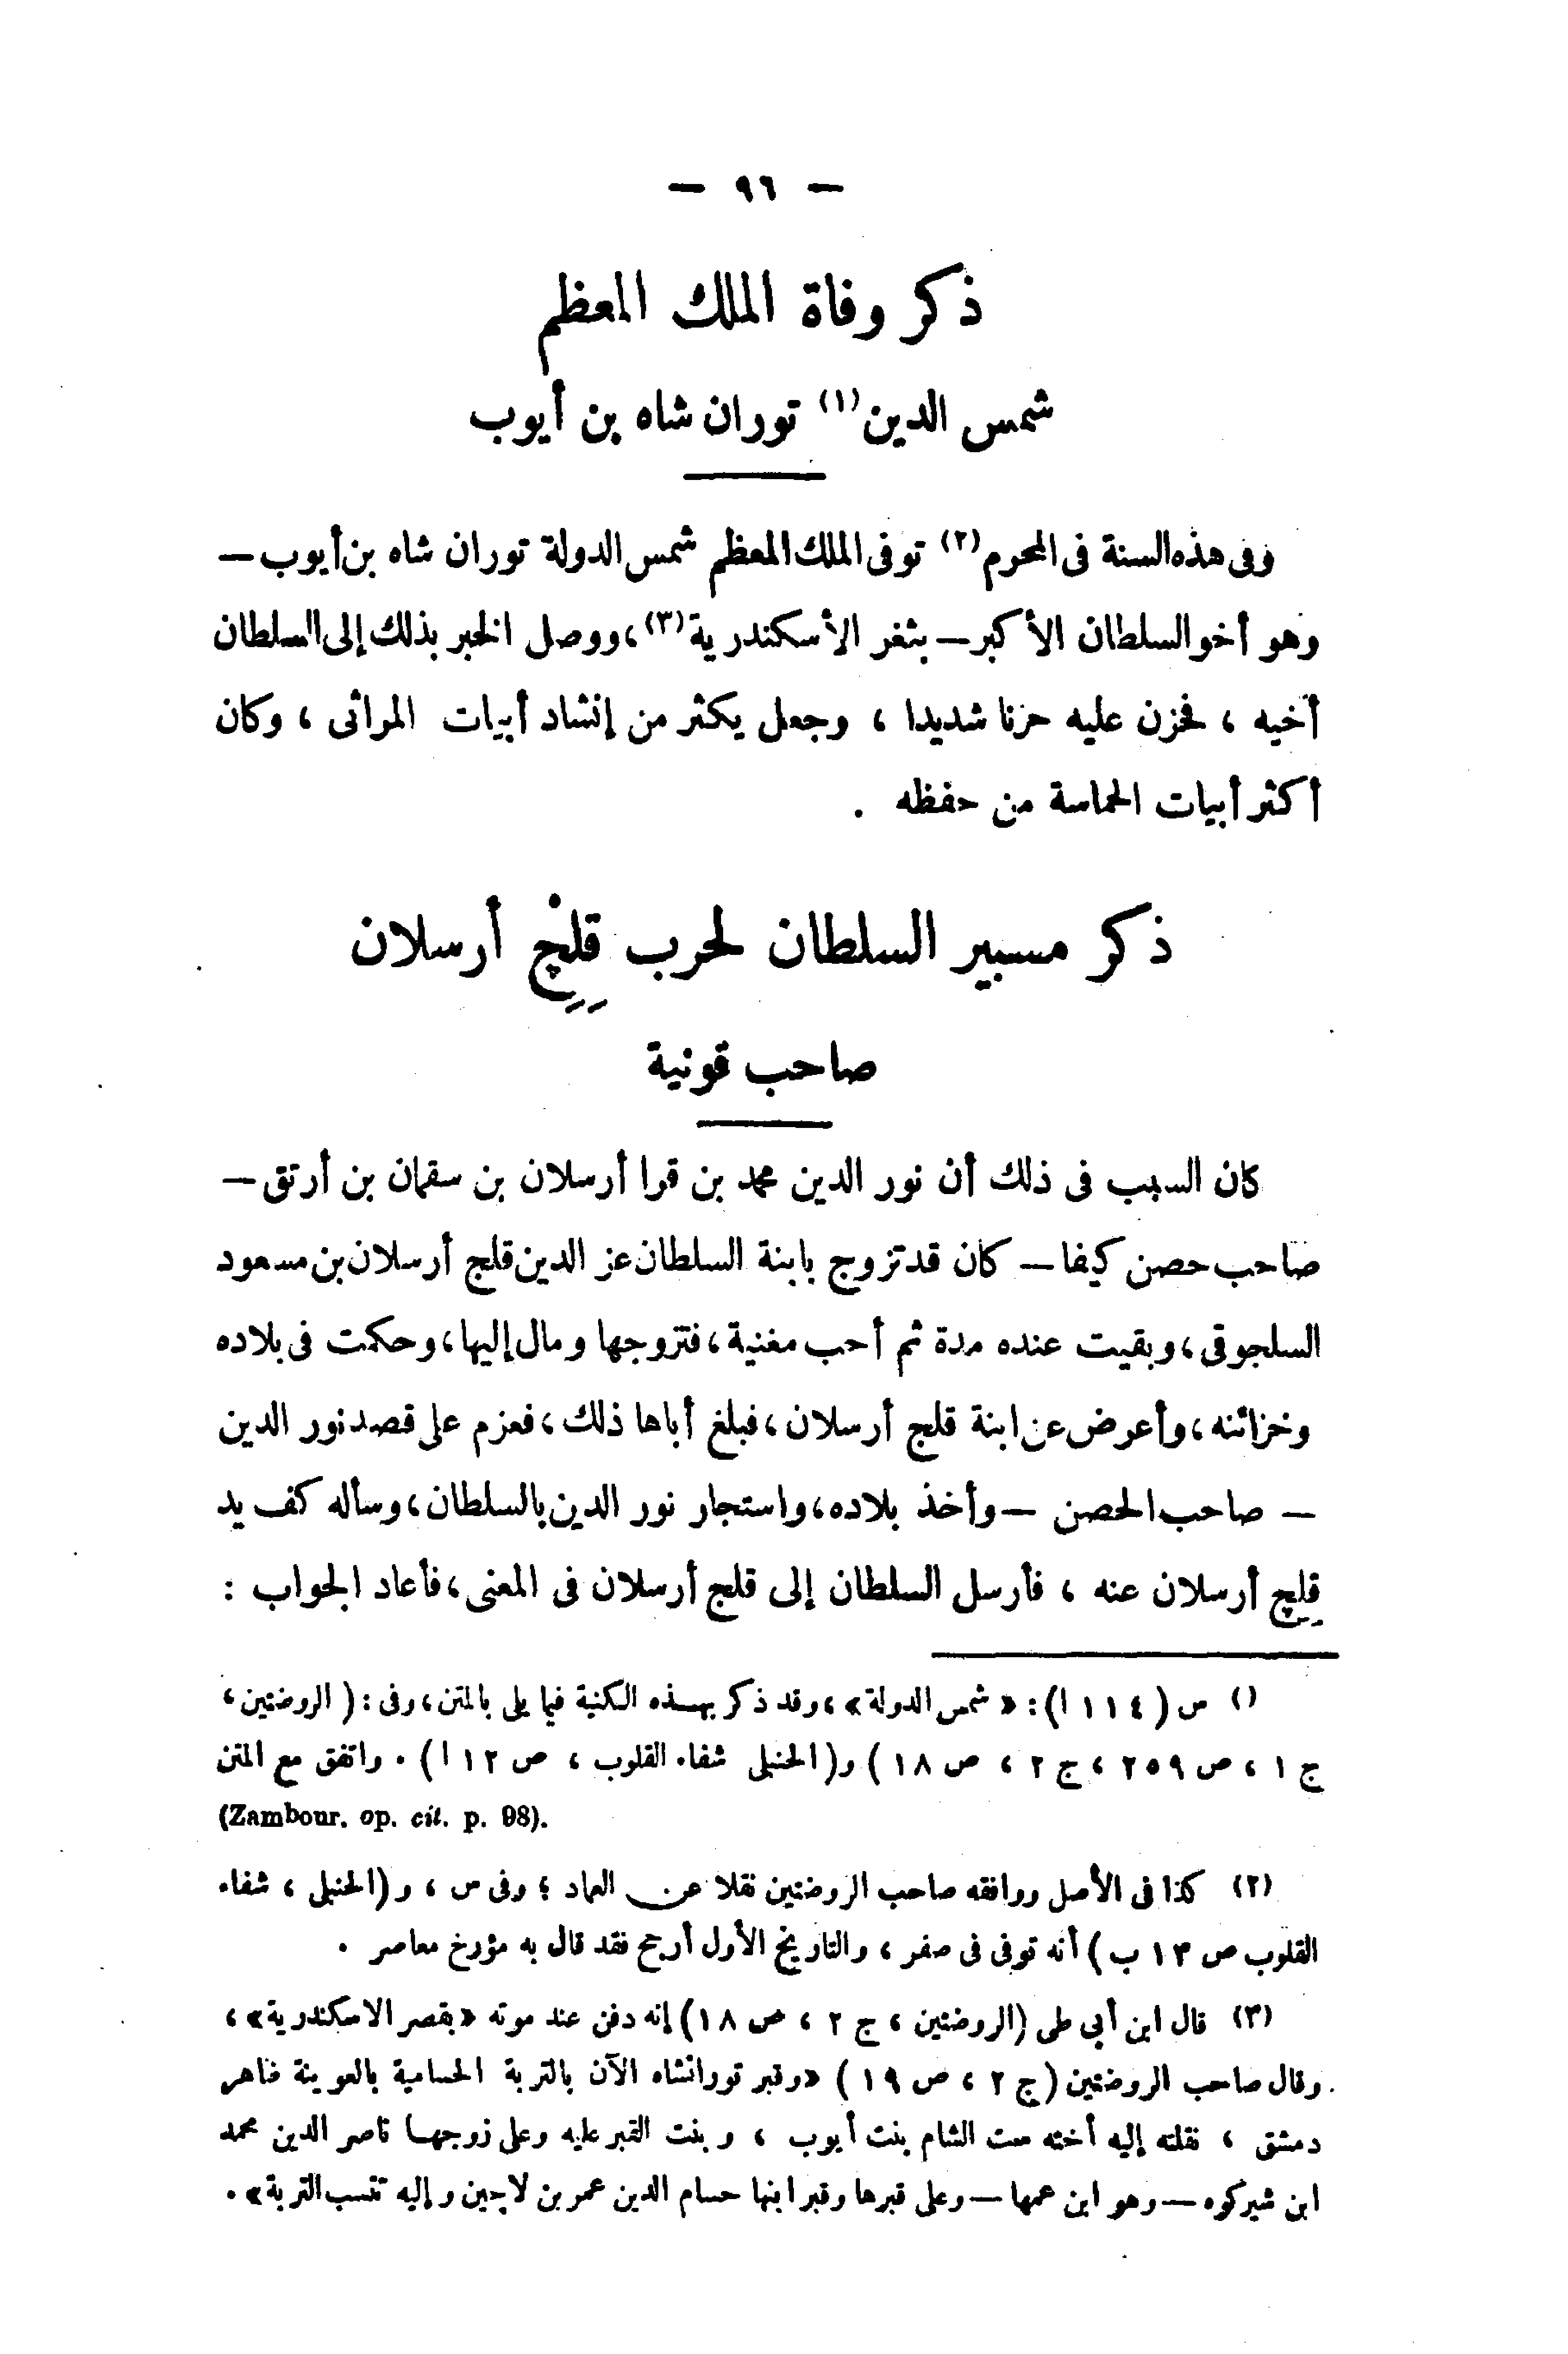 — ٩٦ —
ذكر وفاة الملك المعظم
شمس الدين(١) توران شاه بن أيوب
وفى هذه السنة فى المحرم(٢) توفى الملك المعظم شمس الدولة توران شاه بن أيوب —
وهو أخو السلطان الأكبر — بثغر الأسكندرية(٣)، ووصل الخبر بذلك إلى السلطان
أخيه ، فحزن عليه حزنا شديدا ، وجعل يكثر من إنشاد أبيات المراثى ، وكان
أكثر أبيات الحماسة من حفظه .
ذكر مسير السلطان لحرب قِلِجْ أرسلان
صاحب قونية
كان السبب فى ذلك أن نور الدين محمد بن قرا أرسلان بن سقمان بن أرتق —
صاحب حصن كيفا — كان قد تزوج بابنة السلطان عز الدين قلج أرسلان بن مسعود
السلجوقى، وبقيت عنده مدة ثم أحب مغنية، فتزوجها ومال إليها، وحكمت فى بلاده
وخزائنه، وأعرض عن ابنة قلج أرسلان، فبلغ أباها ذلك، فعزم على قصد نور الدين
— صاحب الحصن — وأخذ بلاده، واستجار نور الدين بالسلطان، وسأله كف يد
قِلِج أرسلان عنه ، فأرسل السلطان إلى قلج أرسلان فى المعنى، فأعاد الجواب :
() س (١١٤ ا): « شمس الدولة»، وقد ذكر بهذه الكنية فيما يلى بالمتن، وفى : ( الروضتين،
ج ١ ، ص ٢٥٩ ، ج ٢ ، ص ١٨ ) و (الحنبلى شفاء القلوب ، ص ١٢ ا) . واتفق مع المتن
(Zambour. op. cit. p. 98).
(٢) كذا فى الأصل ووافقه صاحب الروضتين نقلا عن العماد ؛ وفى س ، و (الحنبلى ، شفاء
القلوب ص ١٣ ب ) أنه توفى فى صفر ، والتاريخ الأول أرجح فقد قال به مؤرخ معاصر .
(٣) قال ابن أبي طى (الروضتين ، ج ٢ ، ص ١٨) إنه دفن عند موته «بقصر الاسكندرية»،
وقال صاحب الروضتين (ج ٢ ، ص ١٩ ) «وقبر تورانشاه الآن بالتربة الحسامية بالعوينة ظاهر
دمشق ، نقلته إليه أخته ست الشام بنت أيوب ، وبنت القبر عليه وعلى زوجها ناصر الدين محمد
ابن شيركوه — وهو ابن عمها — وعلى قبرها وقبر ابنها حسام الدين عمر بن لاجين وإليه تنسب التربة».